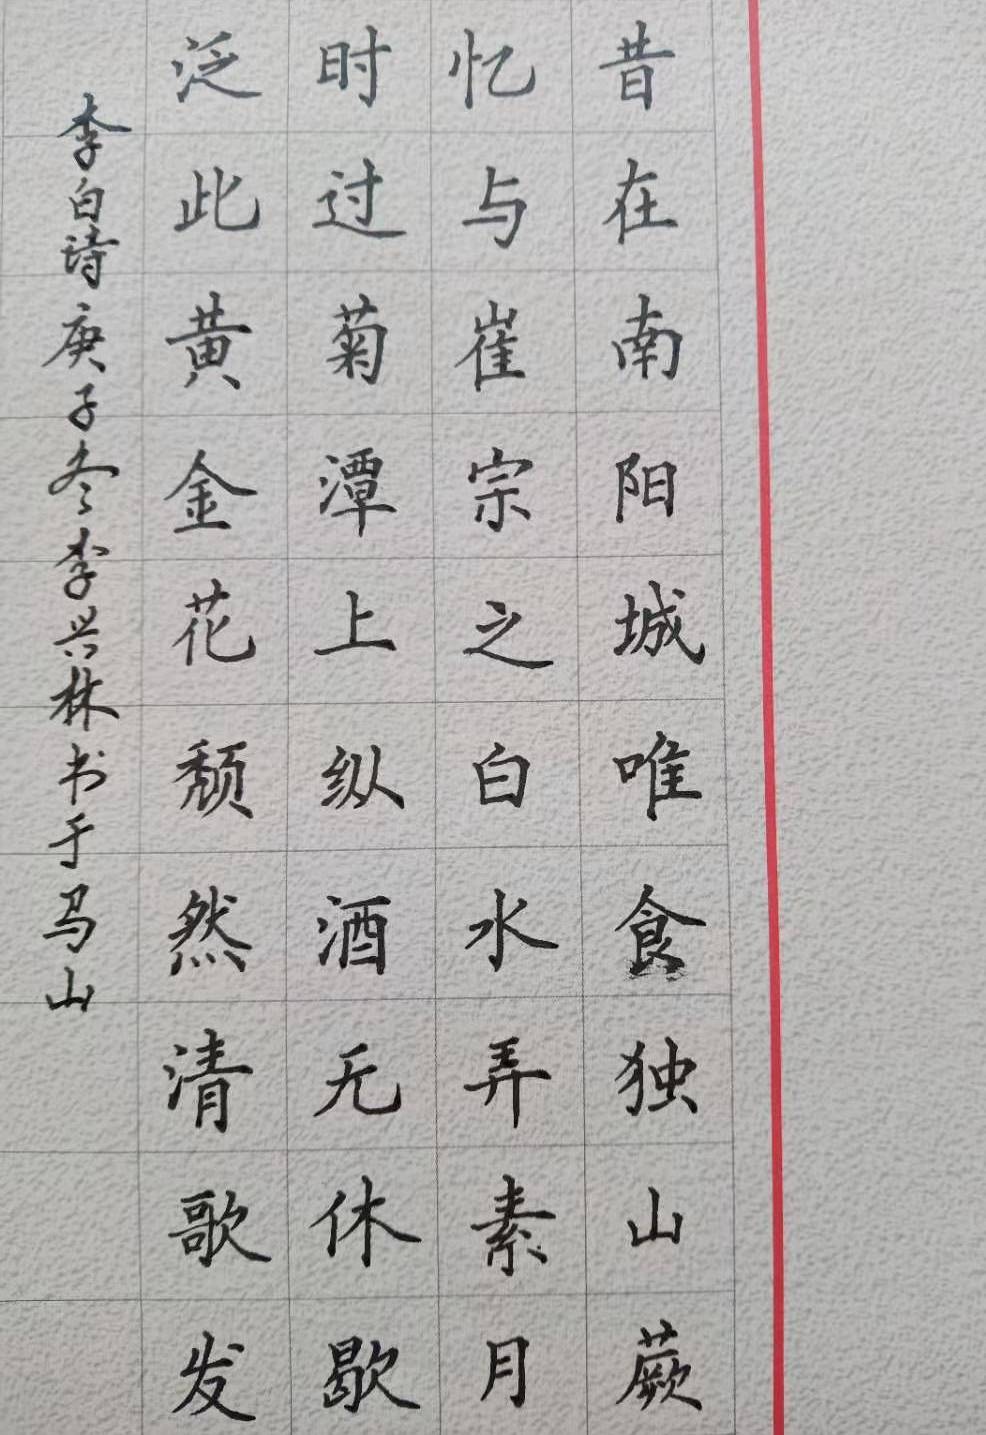 昔在南阳城唯食独山蕨
忆与崔宗之白水弄素月
时过菊潭上纵酒无休歇
泛此黄金花颓然清歌发
李白诗庚子冬李兴林书于马山